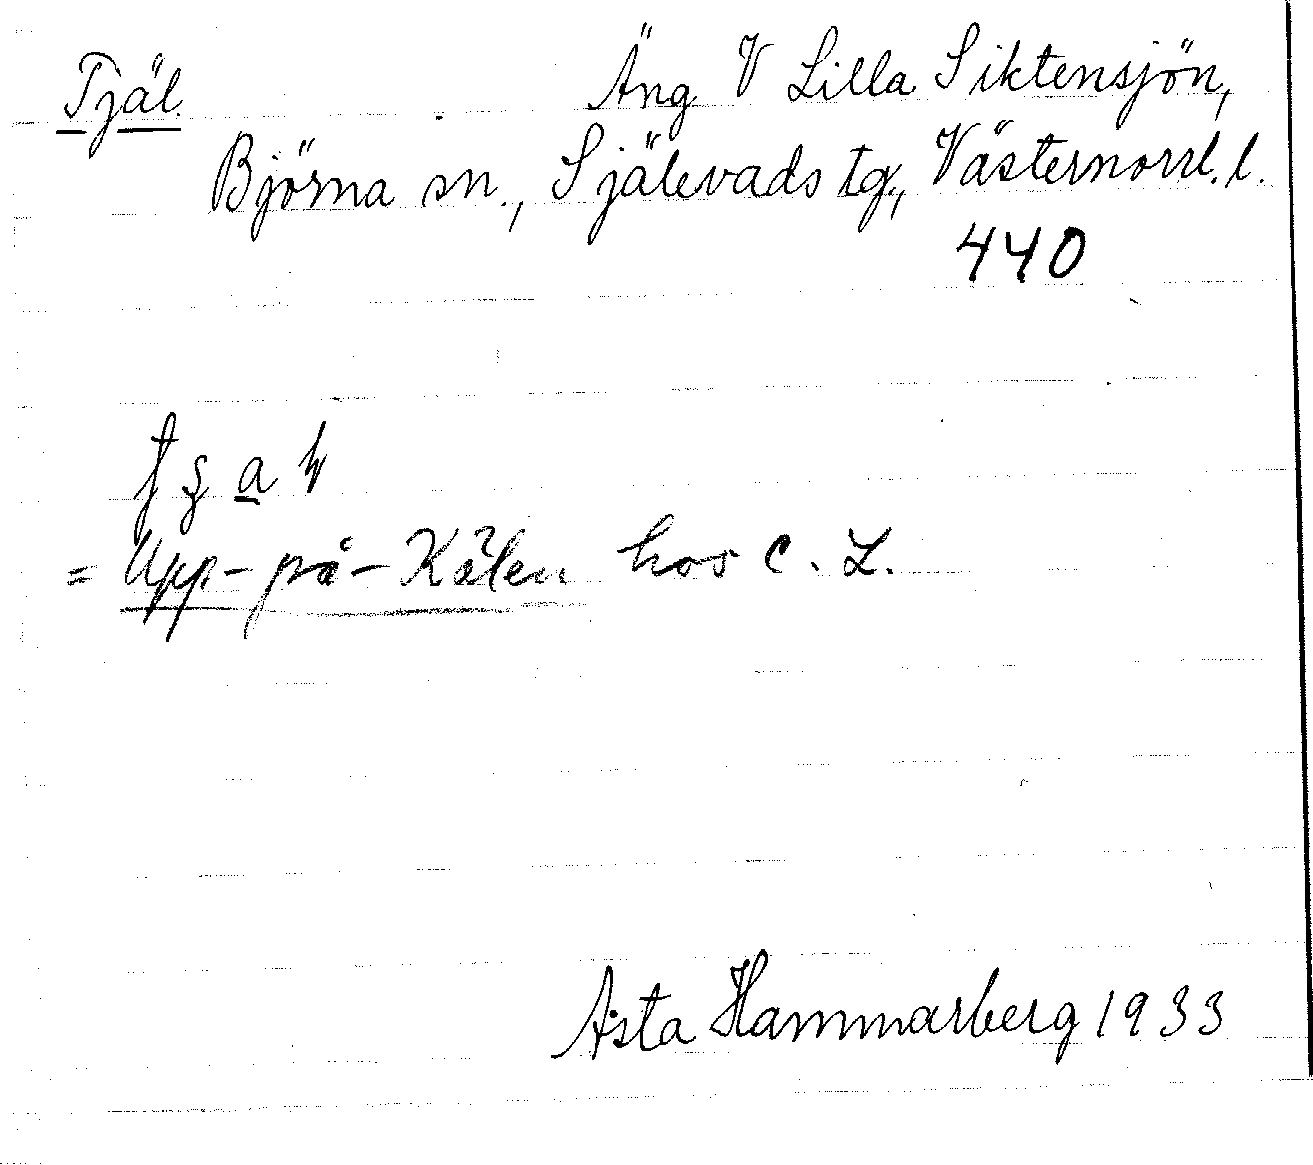 Tjäl. Äng V Lilla Siktensjön,
Björna sn., Själevads tg., Västernorrl. l.
440
= Upp-på-Kälen hos C. L.
Asta Hammarberg 1933